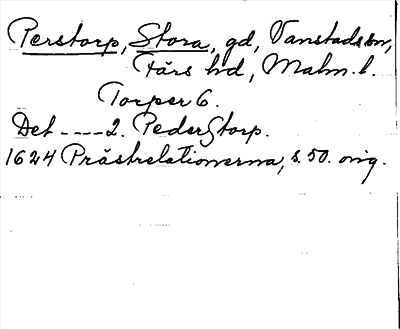 Perstorp, Stora, gd, Vanstads sn,
Färs hd, Malm. l.
Torper 6.
Det ---- 2. Pederstorp.
1624 Prästrelationerna, s. 50. orig.